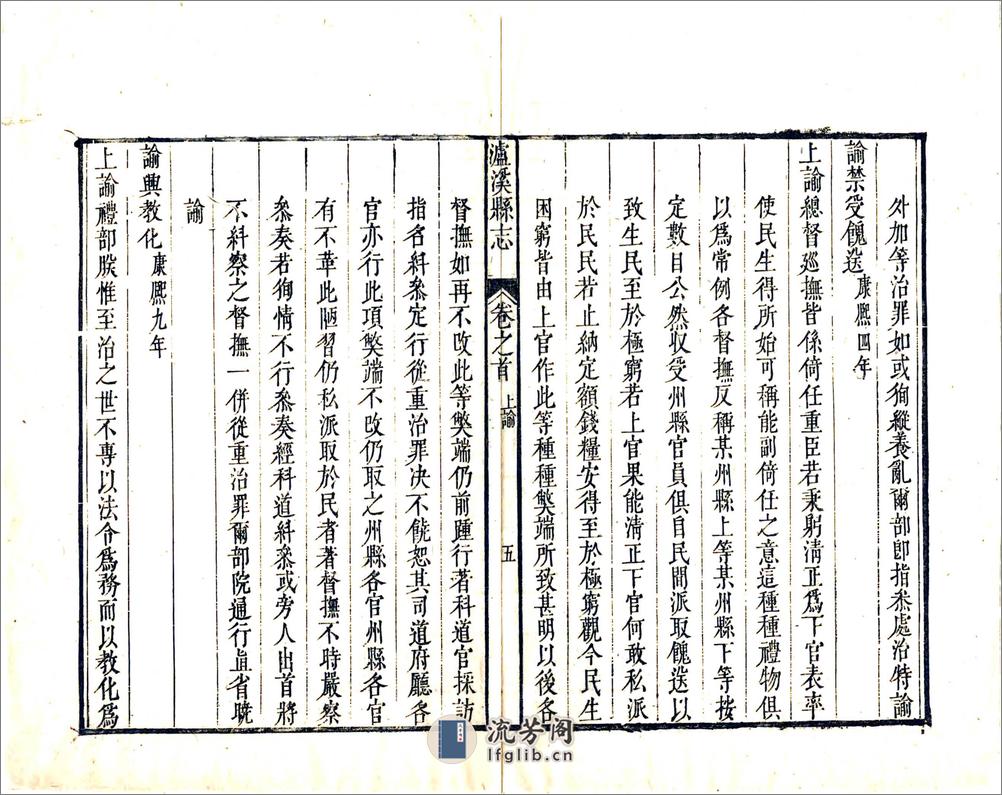 外加等治罪如或狥縱養亂爾部卽指叅處治特諭
諭禁受餽送康熙四年
上諭總督巡撫皆係倚任重臣若秉躬清正爲下官表率
使民生得所始可稱能副倚任之意這種種禮物俱
以爲常例各督撫反稱某州縣上等某州縣下等按
定數目公然収受州縣官員俱自民間派取餽送以
致生民至於極窮若上官果能清正下官何敢私派
於民民若止納定額錢糧安得至於極窮觀今民生
困窮皆由上官作此等種種獘端所致甚明以後各
瀘溪縣志 卷之首 上諭 五
督撫如再不改此等獘端仍前踵行著科道官採訪
指名糾叅定行從重治罪决不饒恕其司道府廳各
官亦行此項獘端不改仍取之州縣各官州縣各官
有不革此陋習仍私派取於民者著督撫不時嚴察
叅奏若狥情不行叅奏經科道糾叅或旁人出首將
不糾察之督撫一併從重治罪爾部院通行直省曉
諭
諭興教化康熙九年
上諭禮部朕惟至治之世不專以法令爲務而以教化爲
流芳阁
lfglib.cn